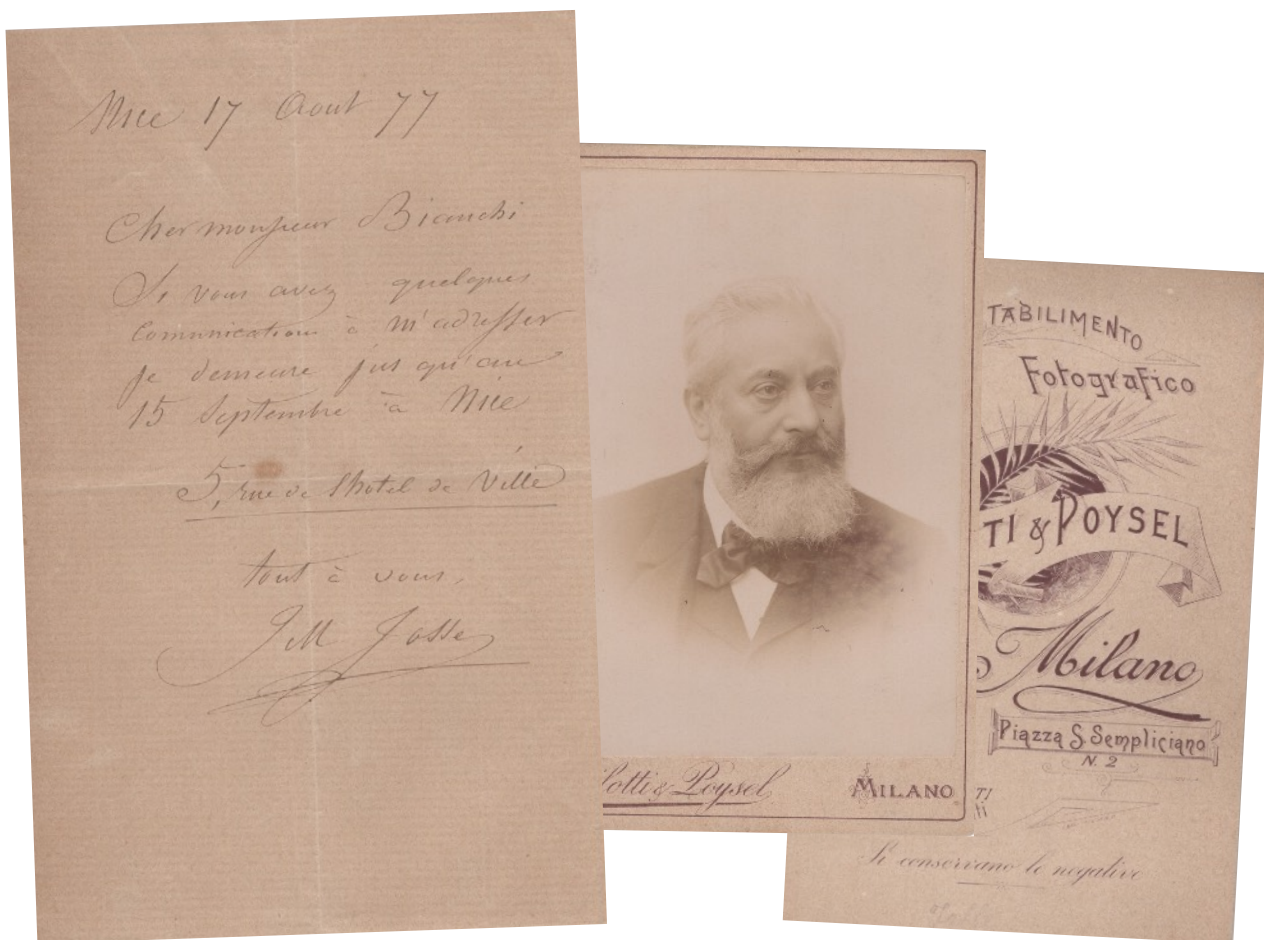 Nice 17 Aout 77
Cher monsieur Bianchi
Si vous avez quelques
communication à m'adresser
je demeure jus qu'au
15 Septembre à Nice
5, rue de l'hotel de Ville
tout à vous,
JM Josse
lotti & Poysel MILANO
TABILIMENTO
Fotografico
TI & POYSEL
Milano
Piazza S. Sempliciano
N. 2
TI
Si conservano le negative